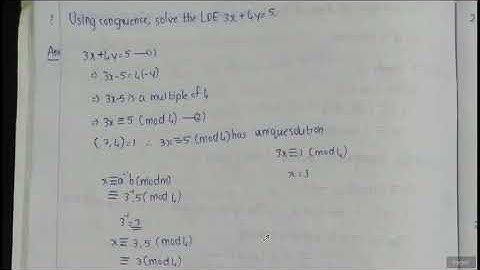 ? Using congruence, solve the LDE 3x+4y=5.
Ans
3x+4y=5 —(1)
⇒ 3x-5=4(-y)
⇒ 3x-5 is a multiple of 4
⇒ 3x≡5 (mod 4) —(2)
(3,4)=1 ∴ 3x≡5 (mod 4) has a unique solution
3x≡1 (mod 4)
x=3
x≡a⁻¹b (mod m)
≡ 3⁻¹.5 (mod 4)
3⁻¹=3
x≡ 3.5 (mod 4)
≡ 3 (mod 4)
2